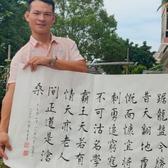 踞龍盤
昔天翻地
慨而慷宜將
剩勇追窮寇
不可沽名學
霸王天若有
情天亦老人
間正道是滄
桑